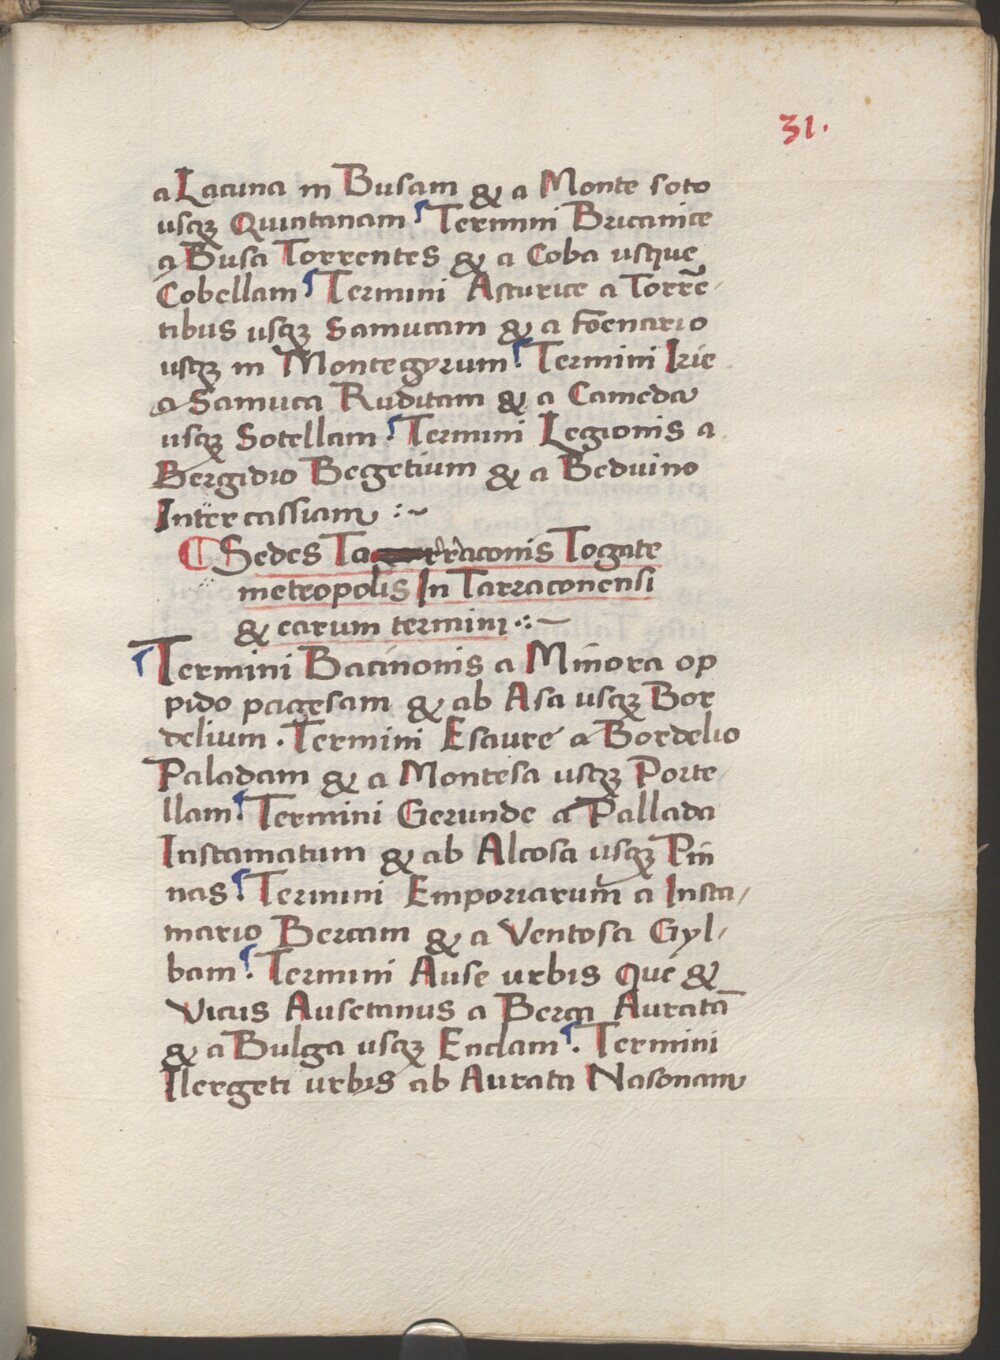 31.
a Lacuna in Busam & a Monte soto
usqꝫ Quintanam Termini Bricanice
a Busa Torrentes & a Coba usque
Cobellam Termini Asturice a Torrē-
tibus usqꝫ Samucam & a foenario
usqꝫ in Montegyrum. Termini Irie
a Samuca Ruditam & a Cameda
usqꝫ Sotellam. Termini Legionis a
Bergidio Begetium & a Beduino
Intercassiam :~
Sedes Tarraconis Togate
metropolis In Tarraconensi
& earum termini :~
Termini Bacinonis a Minora op
pido pagesam & ab Asa usqꝫ Bor
delium. Termini Escure a Bordelio
Paladam & a Montesa usqꝫ Porte
llam. Termini Gerunde a Pallada
Instamatum & ab Alcosa usqꝫ Pin
nas. Termini Emporiarum a Insta/
mario Bercam & a Ventosa Gyl/
bam. Termini Ause urbis Que &
Vicus Ausetanus a Berca Auratā
& a Bulga usqꝫ Enclam. Termini
Ilergeti urbis ab Aurata Nasonam